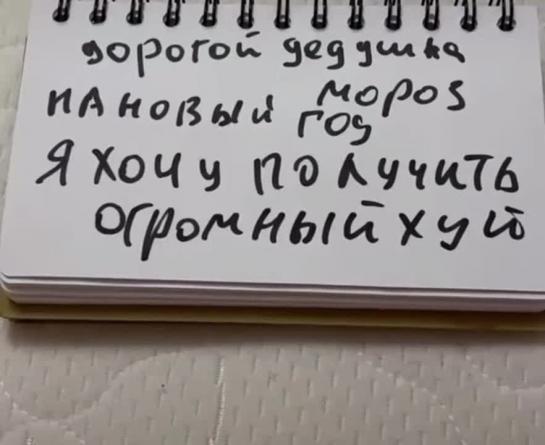 дорогой дедушка
мороз
на новый год
я хочу получить
огромный хуй